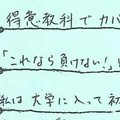 得意教科でカバ
「これなら負けない!」
私は大学に入って初